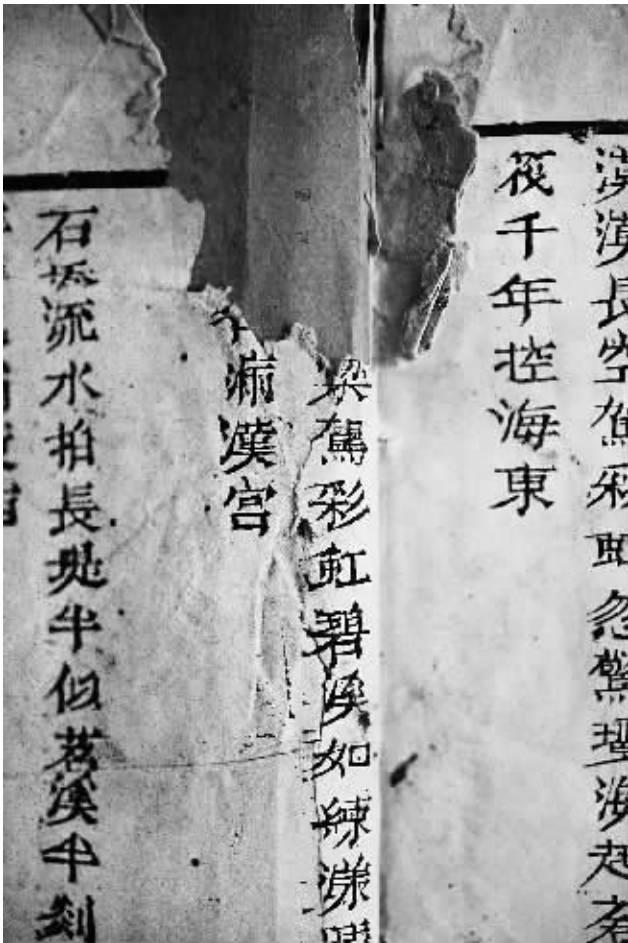 漠漠長空駕彩虹忽驚海起
筏千年控海東
梁駕彩虹碧溪如練漾
滿漢宮
石流水拍長堤半似苕溪半剡